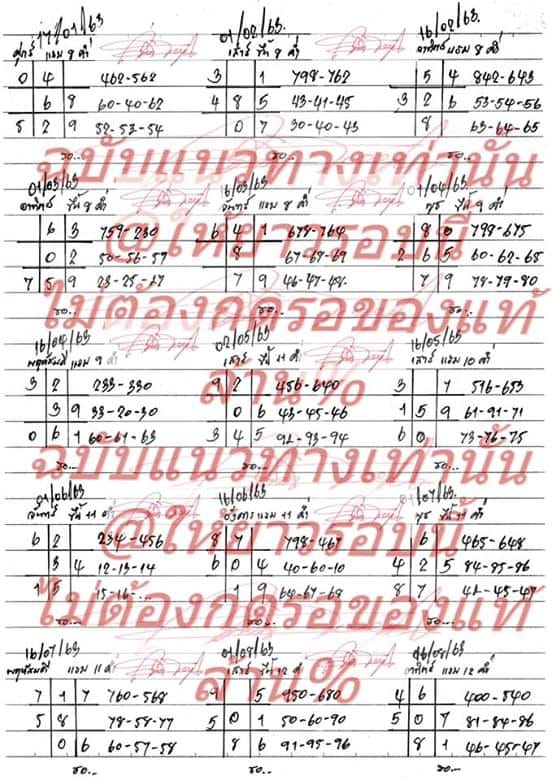 17/01/63
01/02/63
16/02/63
ศุกร์ แรม 8 ค่ำ
เสาร์ ขึ้น 8 ค่ำ
อาทิตย์ แรม 8 ค่ำ
0 4 462-562
3 1 798-762
5 4 842-643
6 8 60-40-62
4 8 5 43-41-45
3 2 6 53-54-56
5 2 9 52-53-54
0 7 30-40-43
8 63-64-65
รอ...
รอ...
รอ...
ฉบับแนวทางเท่านั้น
01/03/63
16/03/63
01/04/63
อาทิตย์ ขึ้น 8 ค่ำ
จันทร์ แรม 8 ค่ำ
พุธ ขึ้น 9 ค่ำ
@ให้ยาวรอบนี้
6 3 759-230
6 4 1 678-764
8 0 798-675
0 2 50-56-57
8 67-68-69
2 6 5 60-62-68
7 5 9 23-25-27
7 9 46-47-48
7 9 78-79-80
รอ...
รอ...
รอ...
ไม่ต้องกดรอของแท้
16/04/63
02/05/63
16/05/63
พฤหัสบดี แรม 9 ค่ำ
เสาร์ ขึ้น 11 ค่ำ
เสาร์ แรม 10 ค่ำ
ล้าน%
3 2 233-330
9 2 456-640
3 7 516-653
3 9 33-20-30
0 6 43-45-46
1 5 9 61-91-71
0 6 1 60-61-63
3 4 5 92-93-94
6 0 73-76-75
รอ...
รอ...
รอ...
ฉบับแนวทางเท่านั้น
01/06/63
16/06/63
01/07/63
จันทร์ ขึ้น 11 ค่ำ
อังคาร แรม 11 ค่ำ
พุธ ขึ้น 11 ค่ำ
@ให้ยาวรอบนี้
6 2 234-456
8 7 798-467
6 465-648
3 4 12-13-14
6 0 4 40-60-10
4 2 5 84-85-86
1 5 15-16-...
1 9 64-67-68
8 7 42-45-47
รอ...
รอ...
รอ...
ไม่ต้องกดรอของแท้
16/07/63
01/08/63
16/08/63
พฤหัสบดี แรม 11 ค่ำ
เสาร์ ขึ้น 12 ค่ำ
อาทิตย์ แรม 12 ค่ำ
ล้าน%
7 1 7 760-568
9 5 950-680
4 6 400-540
5 8 78-58-77
5 0 1 50-60-90
5 0 7 81-84-86
0 6 60-57-58
8 6 91-95-96
8 1 46-45-47
รอ...
รอ...
รอ...